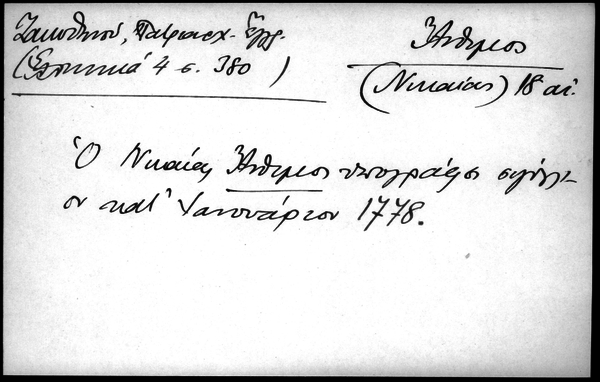 Ζακυθηνού, Πατριαρχ. Έγγ.
(Ελληνικά 4 σ. 380)
Ἄνθιμος
(Νικαίας) 18 αἰ.
Ὁ Νικαίας Ἄνθιμος ὑπογράφει σιγίλλι-
ον κατ' Ἰανουάριον 1778.